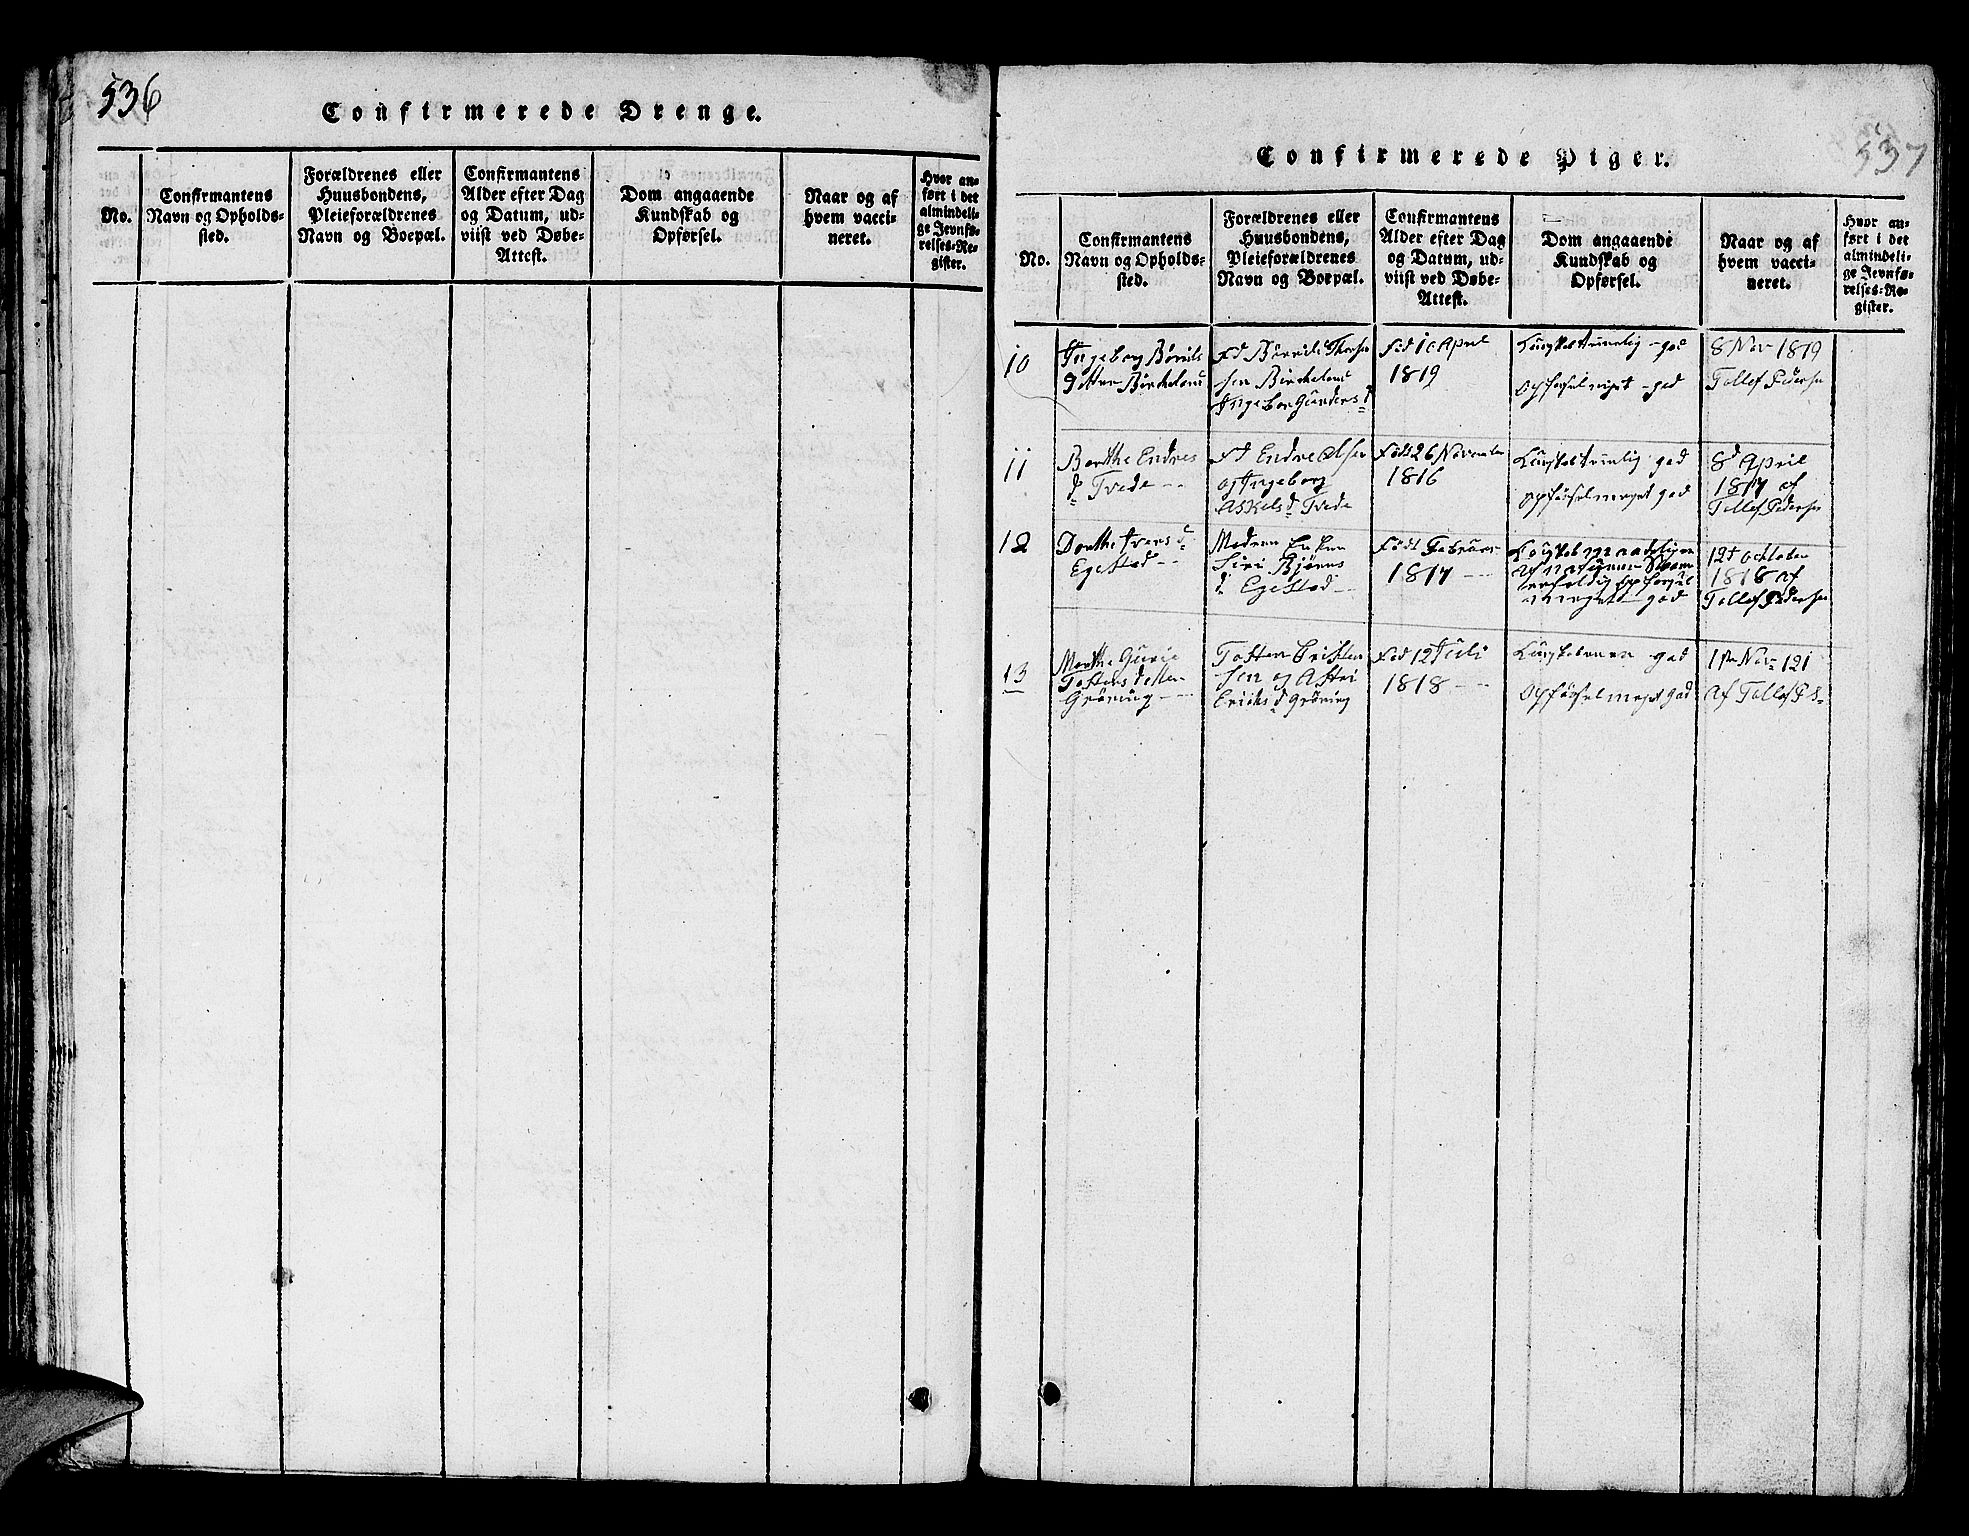 536
Confirmerede Drenge.
No.
Confirmantens
Navn og Opholds-
sted.
Forældrenes eller
Huusbondens,
Pleieforældrenes
Navn og Boepæl.
Confirmantens
Alder efter Dag
og Datum, ud-
viist ved Døbe-
Attest.
Dom angaaende
Kundskab og
Opførsel.
Naar og af
hvem vacci-
neret.
Hvor an-
ført i det
almindeli-
ge Jevnfø-
relses-Re-
gister.
537
Confirmerede Piger.
No.
Confirmantens
Navn og Opholds-
sted.
Forældrenes eller
Huusbondens,
Pleieforældrenes
Navn og Boepæl.
Confirmantens
Alder efter Dag
og Datum, ud-
viist ved Døbe-
Attest.
Dom angaaende
Kundskab og
Opførsel.
Naar og af
hvem vacci-
neret.
Hvor an-
ført i det
almindeli-
ge Jevnfø-
relses-Re-
gister.
10
Ingeborg Børils
datter Birkeland
Børild Thor
sen Birkeland
Ingeborg Gunders d
Fød 10 April
1819
Kunskab - god
opførsel meget - god
8 Nov 1819
Tollef Pedersen
11
Berthe Endres
d Tvede - -
Endre Olsen
og Ingeborg
Askels d Tvede
Født 26 November
1816
Kunskab god
opførsel meget god
8d April
1817 af
Tollef Pedersen
12
Dorthe Ivers d
Egestad - -
Modren Enken
Siri Bjørns
d Egestad -
Født Februar
1817 - -
Kunskab maadelig
af naturen
opførsel
meget god
12t October
1818 af
Tollef Pedersen
13
Marthe Gurie
Tostens datter
Grøning - -
Tosten Eristen
sen og Astri
Erichs d Grøning
Fød 12 Juli
1818 - -
Kunskaben god
opførsel meget god
1 Nov 121
af Tollef P S